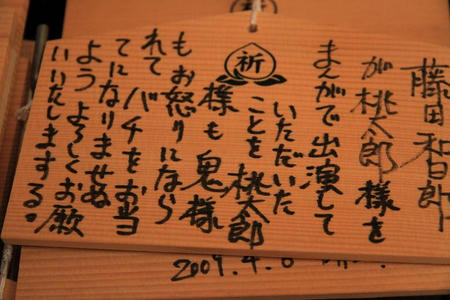 藤田和日郎
が桃太郎様を
まんがで出演して
いただいた
ことを桃太郎
祈
様も鬼様
もお怒りになら
れてバチをお当
てになりませぬ
ようよろしくお願
いいたしまする。
2009.4.6